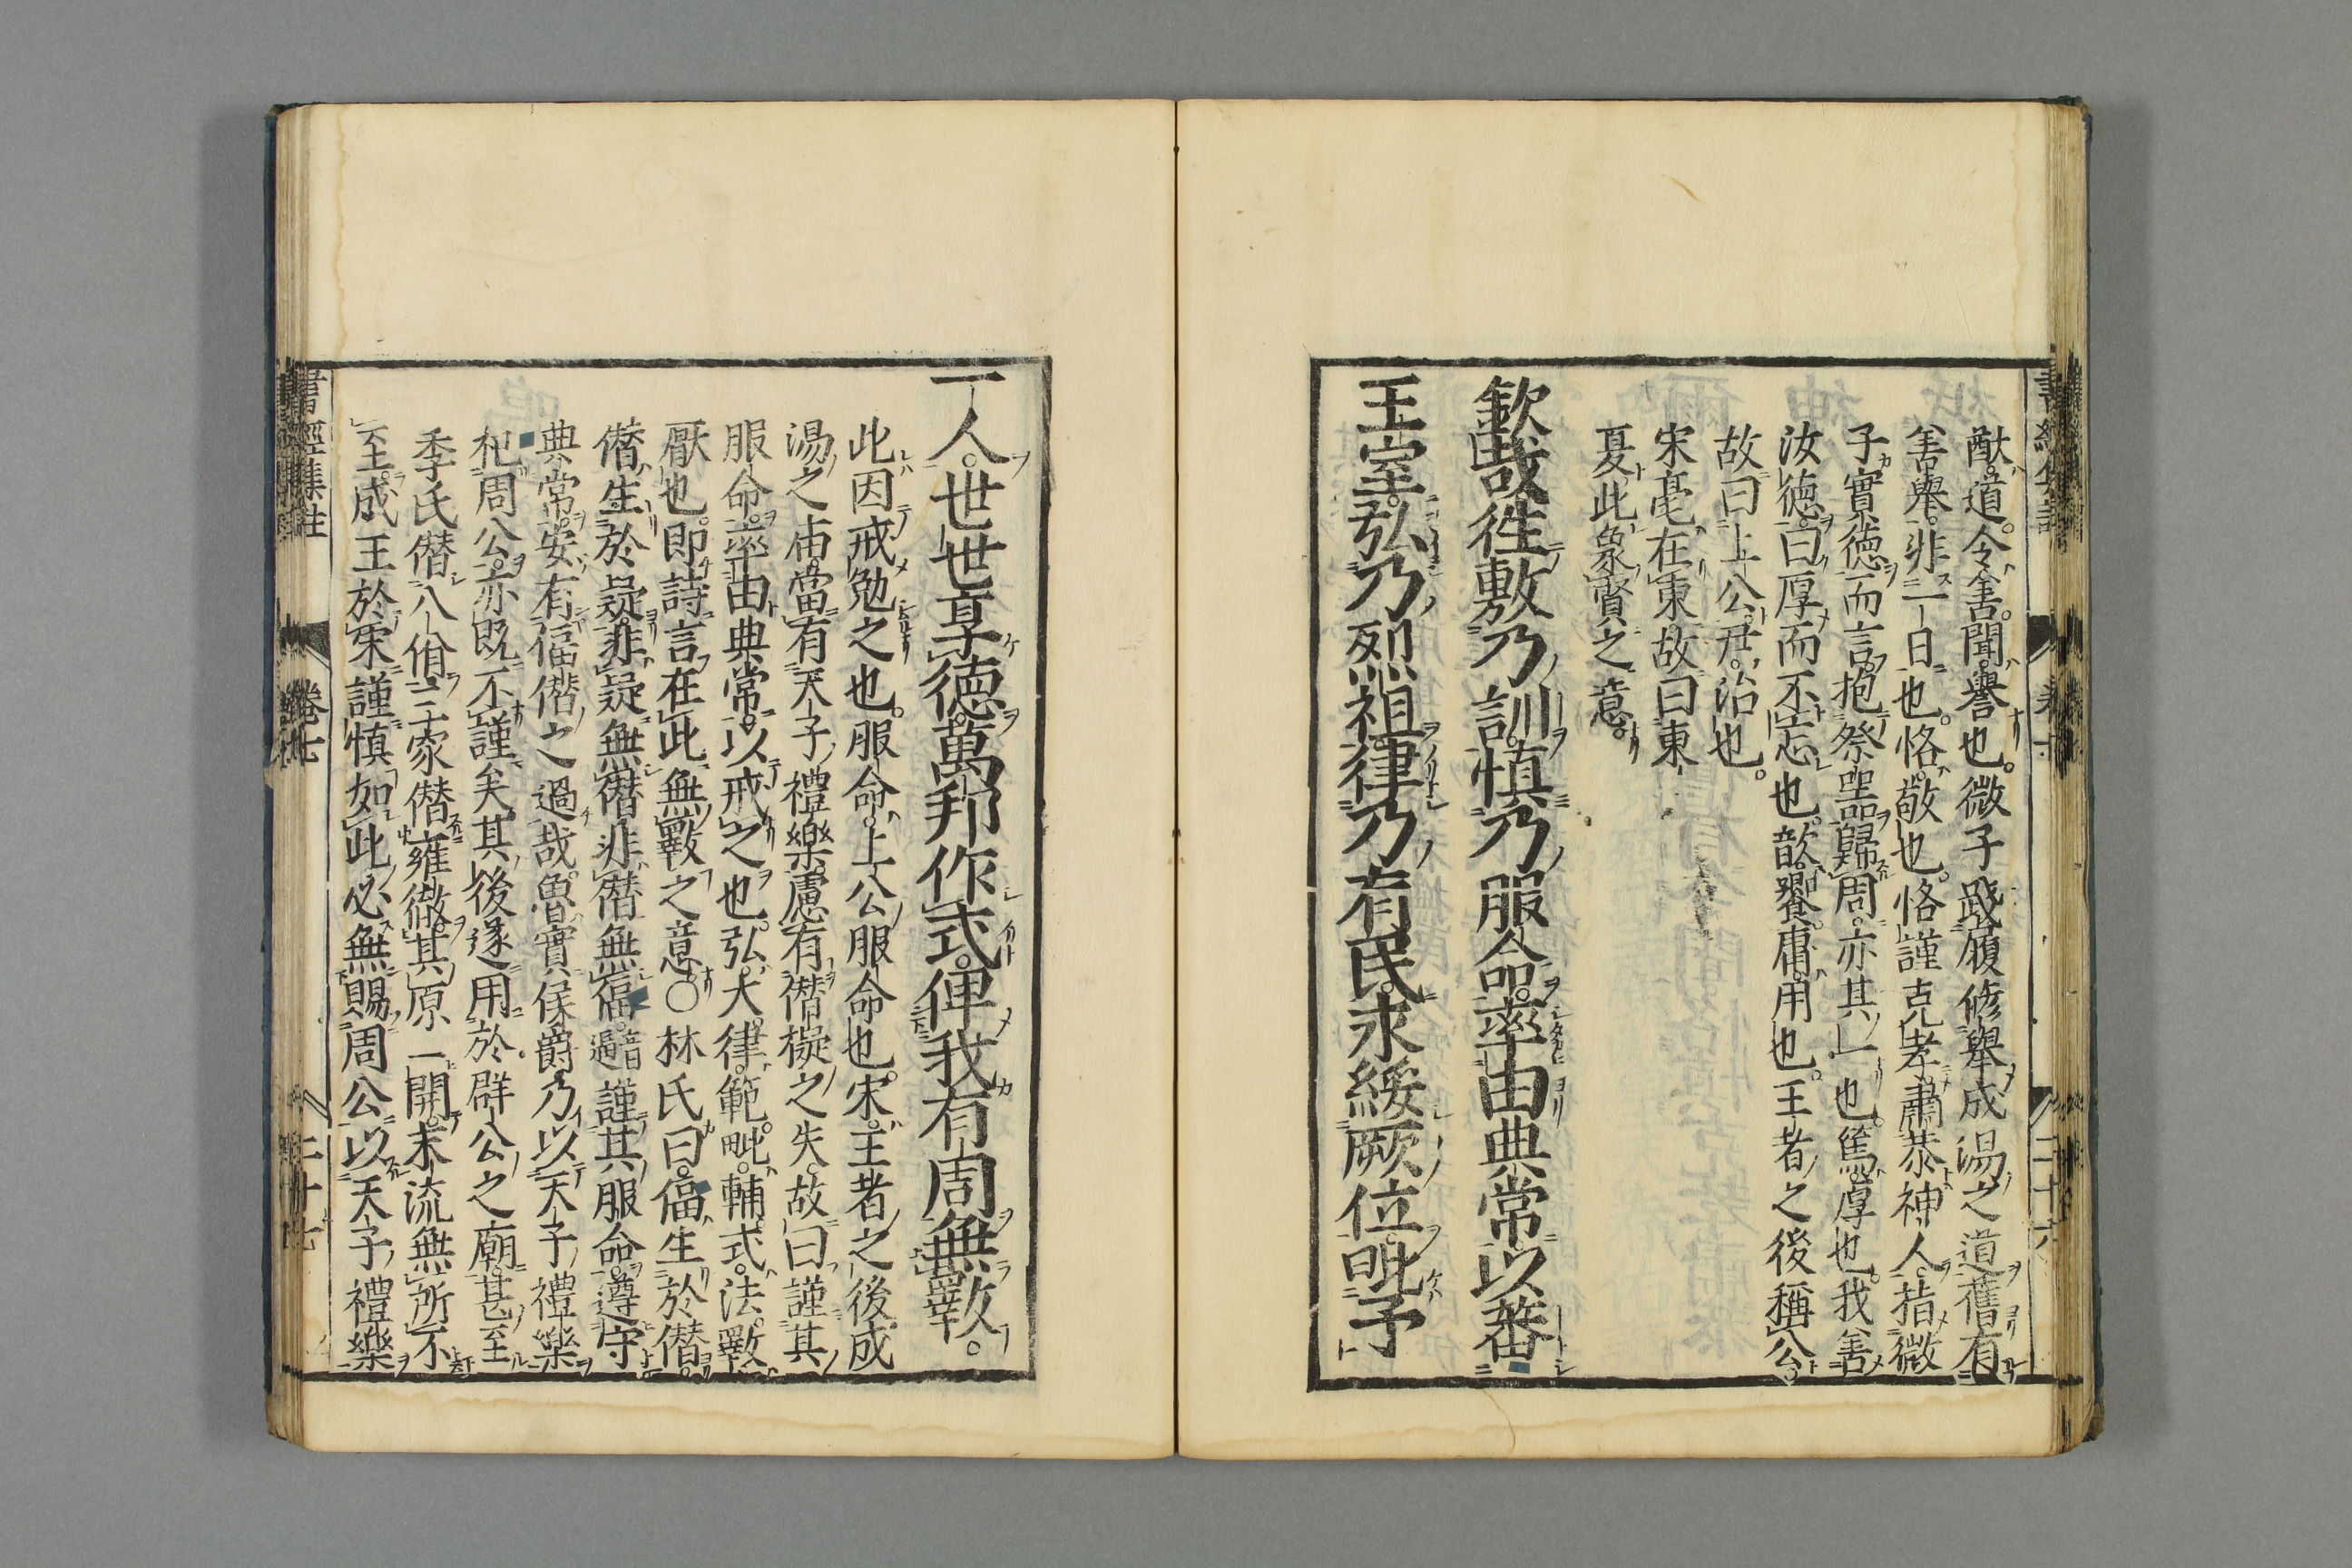 猷道。令善。聞譽也。微子踐履修舉成湯之道舊有
善譽。非一日也。恪敬也。恪謹克孝肅恭神人。指微
子實德而言。抱祭器歸周。亦其一也。篤厚也。我善
汝德。曰厚而不忘也。歆饗。庸用也。王者之後稱公
故曰上公。尹治也。
宋亳在東。故曰東
夏。此象賢之意。
欽哉往敷乃訓。慎乃服命。率由典常。以蕃
王室。弘乃烈祖。律乃有民。永綏厥位。毗予
一人。世世享德。萬邦作式。俾我有周無斁。
此因戒勉之也。服命。上公服命也。宋。王者之後成
湯之庙。當有天子禮樂。慮有僭擬之失。故曰謹其
服命。率由典常。以戒之也。弘。大。律。範。毗。輔。式。法。斁
厭也。即詩言在此無斁之意。〇林氏曰。偪生於僭。
僭生於疑。非疑無僭。非僭無偪。音逼謹其服命。遵守
典常。安有偪僭之過哉。魯實侯爵。乃以天子禮樂
祀周公。亦既不謹矣。其後遂用於群公之廟。甚至
季氏僭八佾三家僭雍徹。其原一開。末流無所不
至。成王於宋謹慎如此。必無賜周公以天子禮樂
書經集註
卷七
二十六
書經集註
卷七
二十七